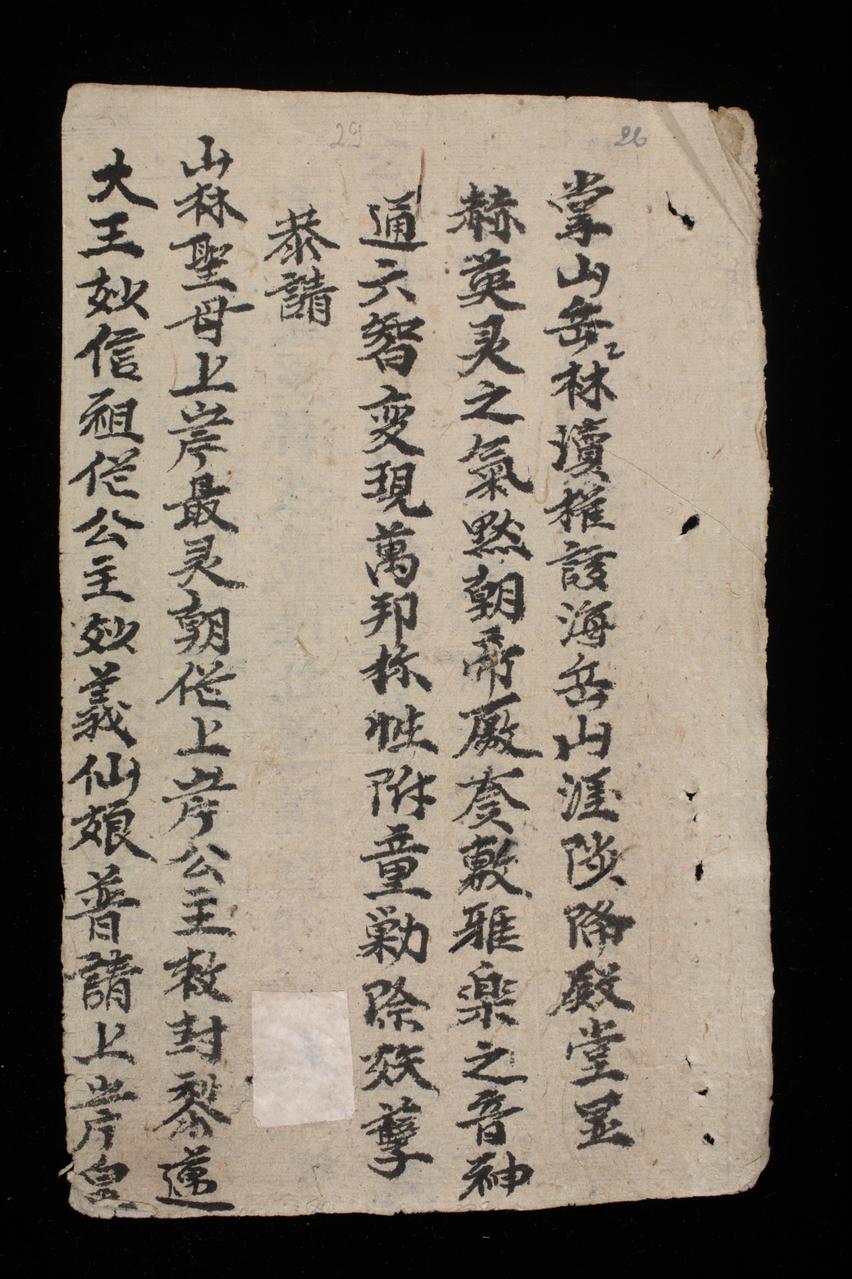 29
26
掌山岳〻林瀆權該海岳山涯陟降殿堂显
赫英灵之氣默朝帝廐𡗉敷雅楽之音神
通六智变現萬邦称性附童勦除妖孽
恭請
山林聖母上岸最灵朝仙上岸公主敕封黎邁
大王妙信祖仙公主妙義仙娘普請上岸皇